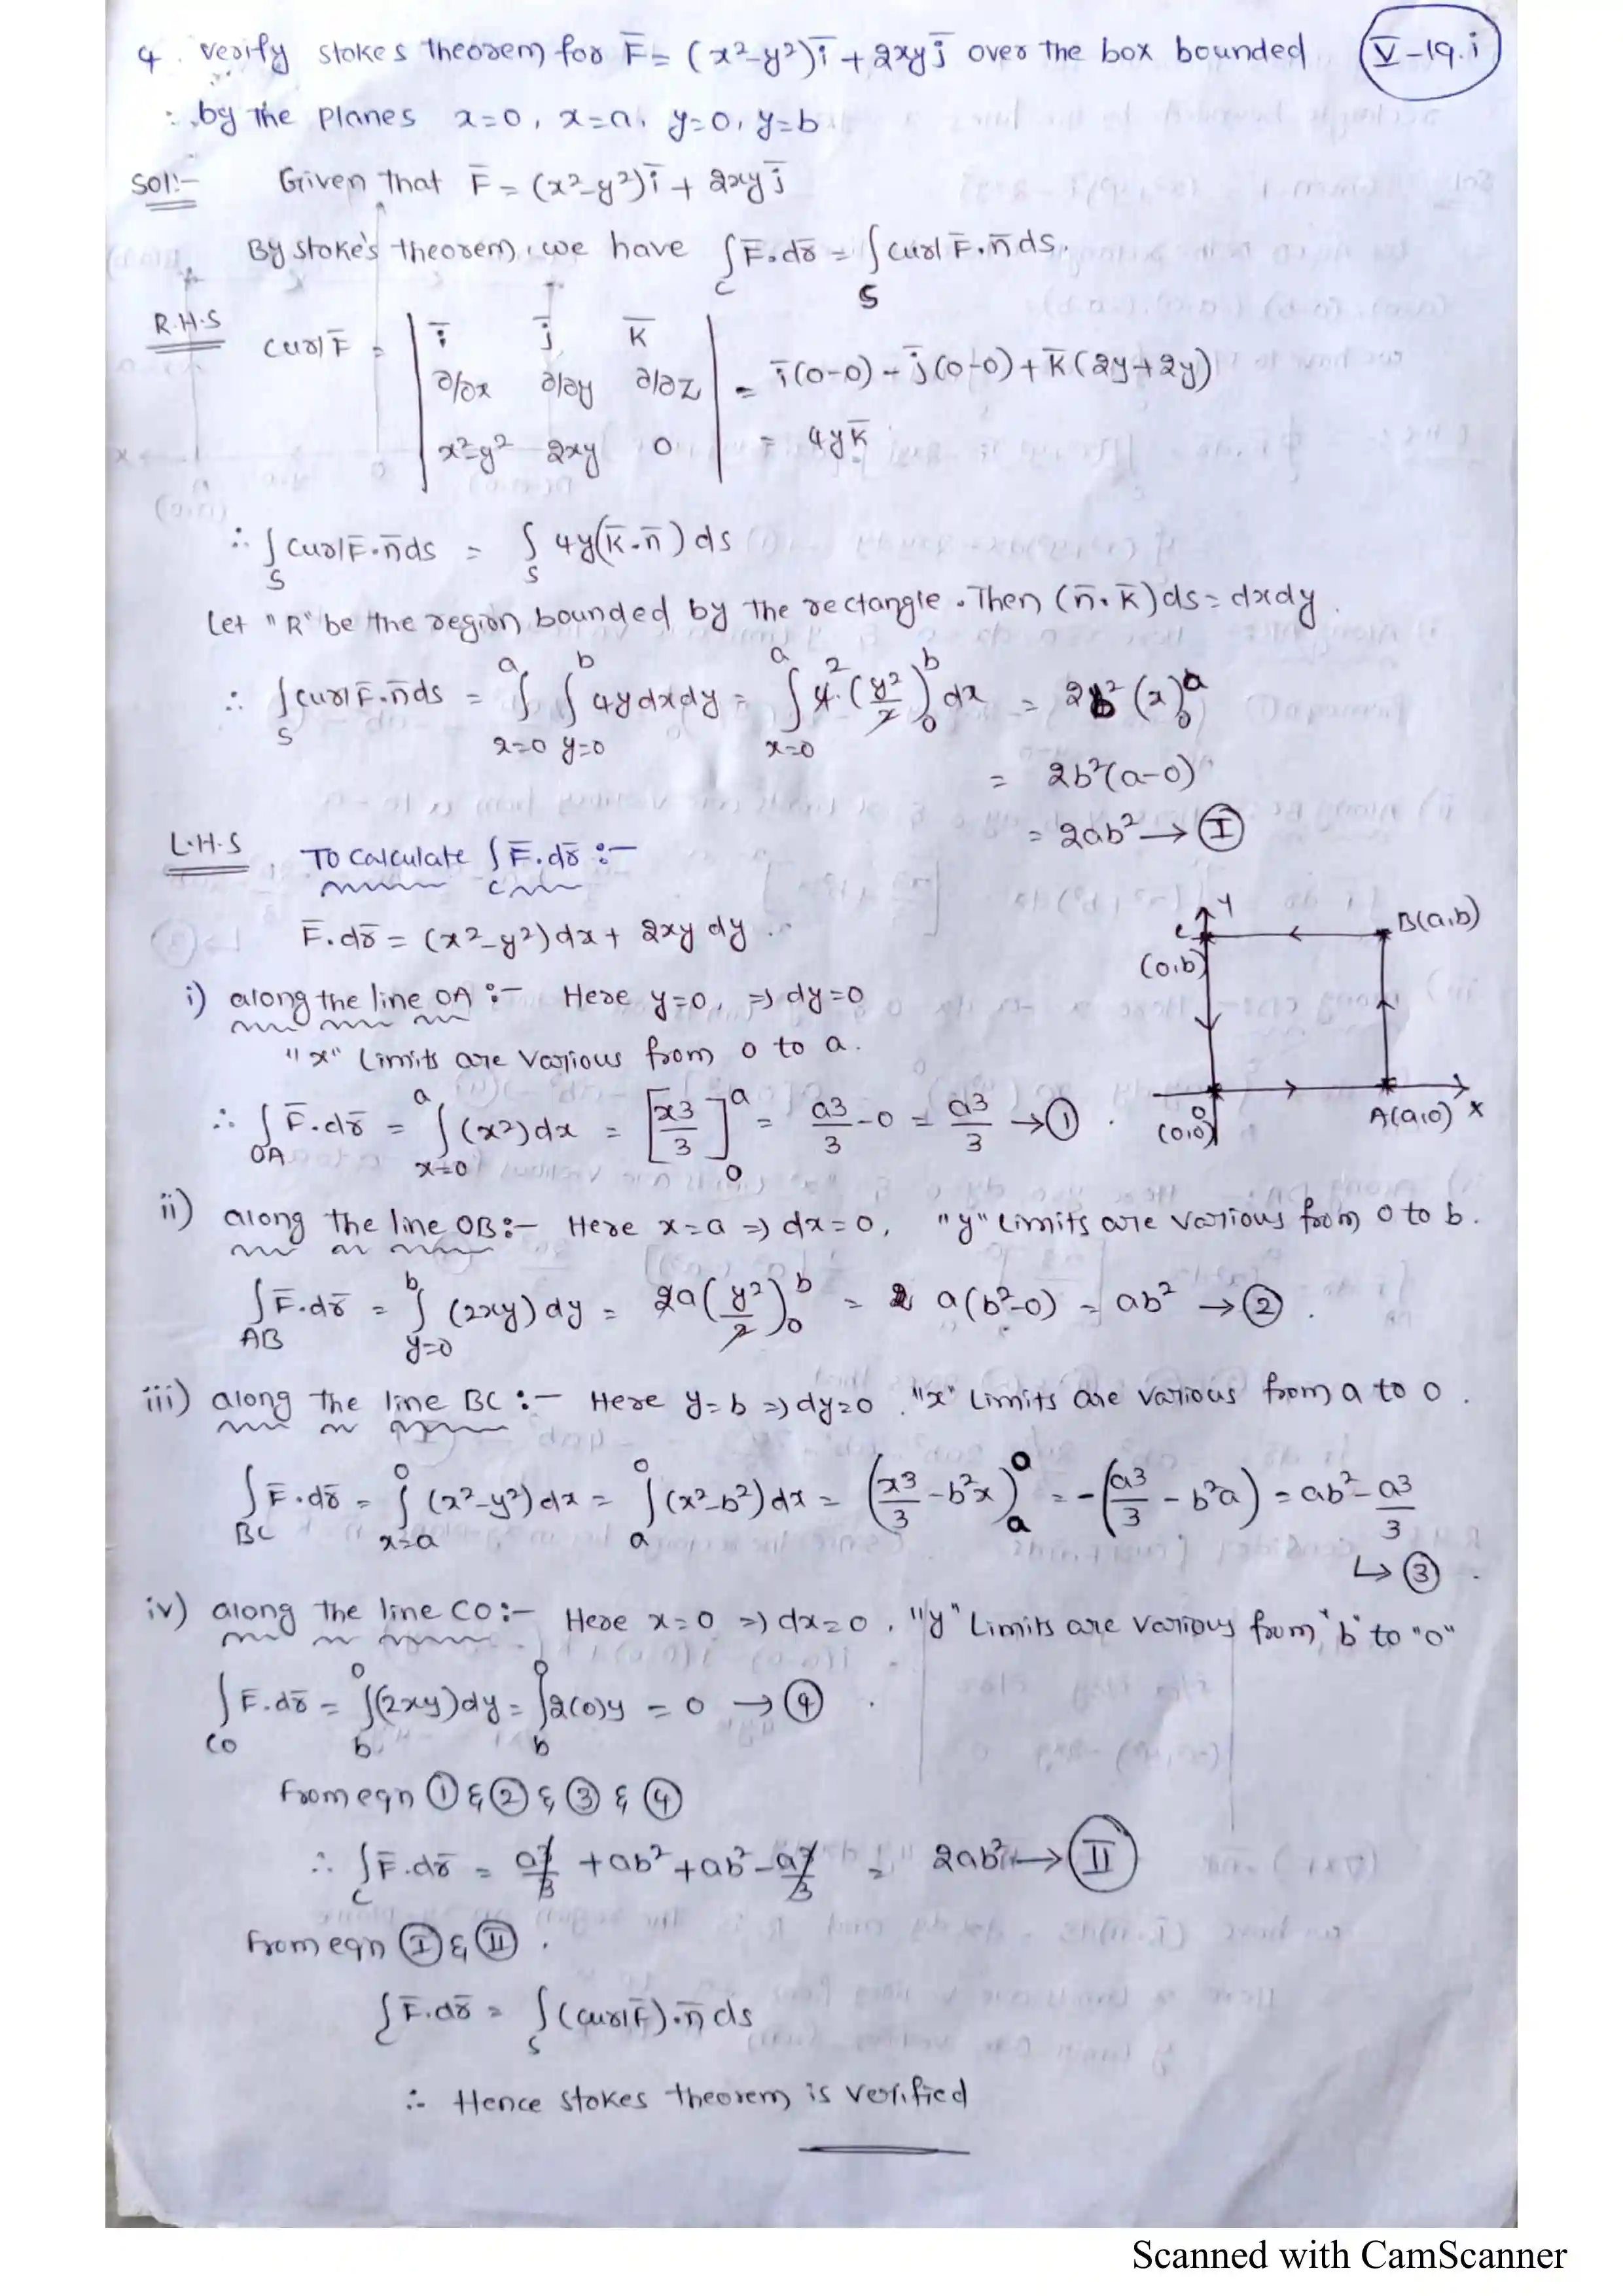 4. Verify stoke's theorem for F̄ = (x²-y²)ī + 2xy j̄ over the box bounded V-19.i
by the planes x=0, x=a, y=0, y=b
Sol:- Given that F̄ = (x²-y²)ī + 2xy j̄
By stoke's theorem, we have ∫_C F̄.dr̄ = ∫_S curl F̄.n̄ ds.
R.H.S
curl F̄ = | ī j̄ k̄ |
| ∂/∂x ∂/∂y ∂/∂z | = ī(0-0) - j̄(0-0) + k̄(2y+2y)
| x²-y² 2xy 0 | = 4y k̄
∴ ∫_S curl F̄.n̄ ds = ∫_S 4y(k̄.n̄) ds
Let "R" be the region bounded by the rectangle. Then (n̄.k̄)ds = dxdy.
∴ ∫_S curl F̄.n̄ ds = ∫_{x=0}^{a} ∫_{y=0}^{b} 4y dxdy = ∫_{x=0}^{a} 4.(y²/2)_0^b dx = 2b²(x)_0^a
= 2b²(a-0)
= 2ab² → Ⓘ
L.H.S To calculate ∫_C F̄.dr̄ :-
F̄.dr̄ = (x²-y²)dx + 2xy dy
Y
C
(0,b)
B(a,b)
i) along the line OA :- Here y=0, ⇒ dy=0
"x" Limits are various from 0 to a.
∴ ∫_{OA} F̄.dr̄ = ∫_{x=0}^{a} (x²)dx = [x³/3]_0^a = a³/3 - 0 = a³/3 → ①.
O
(0,0)
A(a,0) X
ii) along the line OB :- Here x=a ⇒ dx=0, "y" Limits are various from 0 to b.
∫_{AB} F̄.dr̄ = ∫_{y=0}^{b} (2xy)dy = 2a(y²/2)_0^b = a(b²-0) = ab² → ②.
iii) along the line BC :- Here y=b ⇒ dy=0. "x" Limits are various from a to 0.
∫_{BC} F̄.dr̄ = ∫_{x=a}^{0} (x²-y²)dx = ∫_a^0 (x²-b²)dx = (x³/3 - b²x)_a^0 = -(a³/3 - b²a) = ab² - a³/3
↳ ③.
iv) along the line CO :- Here x=0 ⇒ dx=0. "y" Limits are various from "b" to "0"
∫_{CO} F̄.dr̄ = ∫_b^0 (2xy)dy = ∫_b^0 2(0)y = 0 → ④.
From eqn ① & ② & ③ & ④
∴ ∫_C F̄.dr̄ = a³/3 + ab² + ab² - a³/3 = 2ab² → Ⓘ Ⓘ
From eqn Ⓘ & ⒾⒾ.
∫_C F̄.dr̄ = ∫_S (curl F̄).n̄ ds
∴ Hence stokes theorem is verified
Scanned with CamScanner